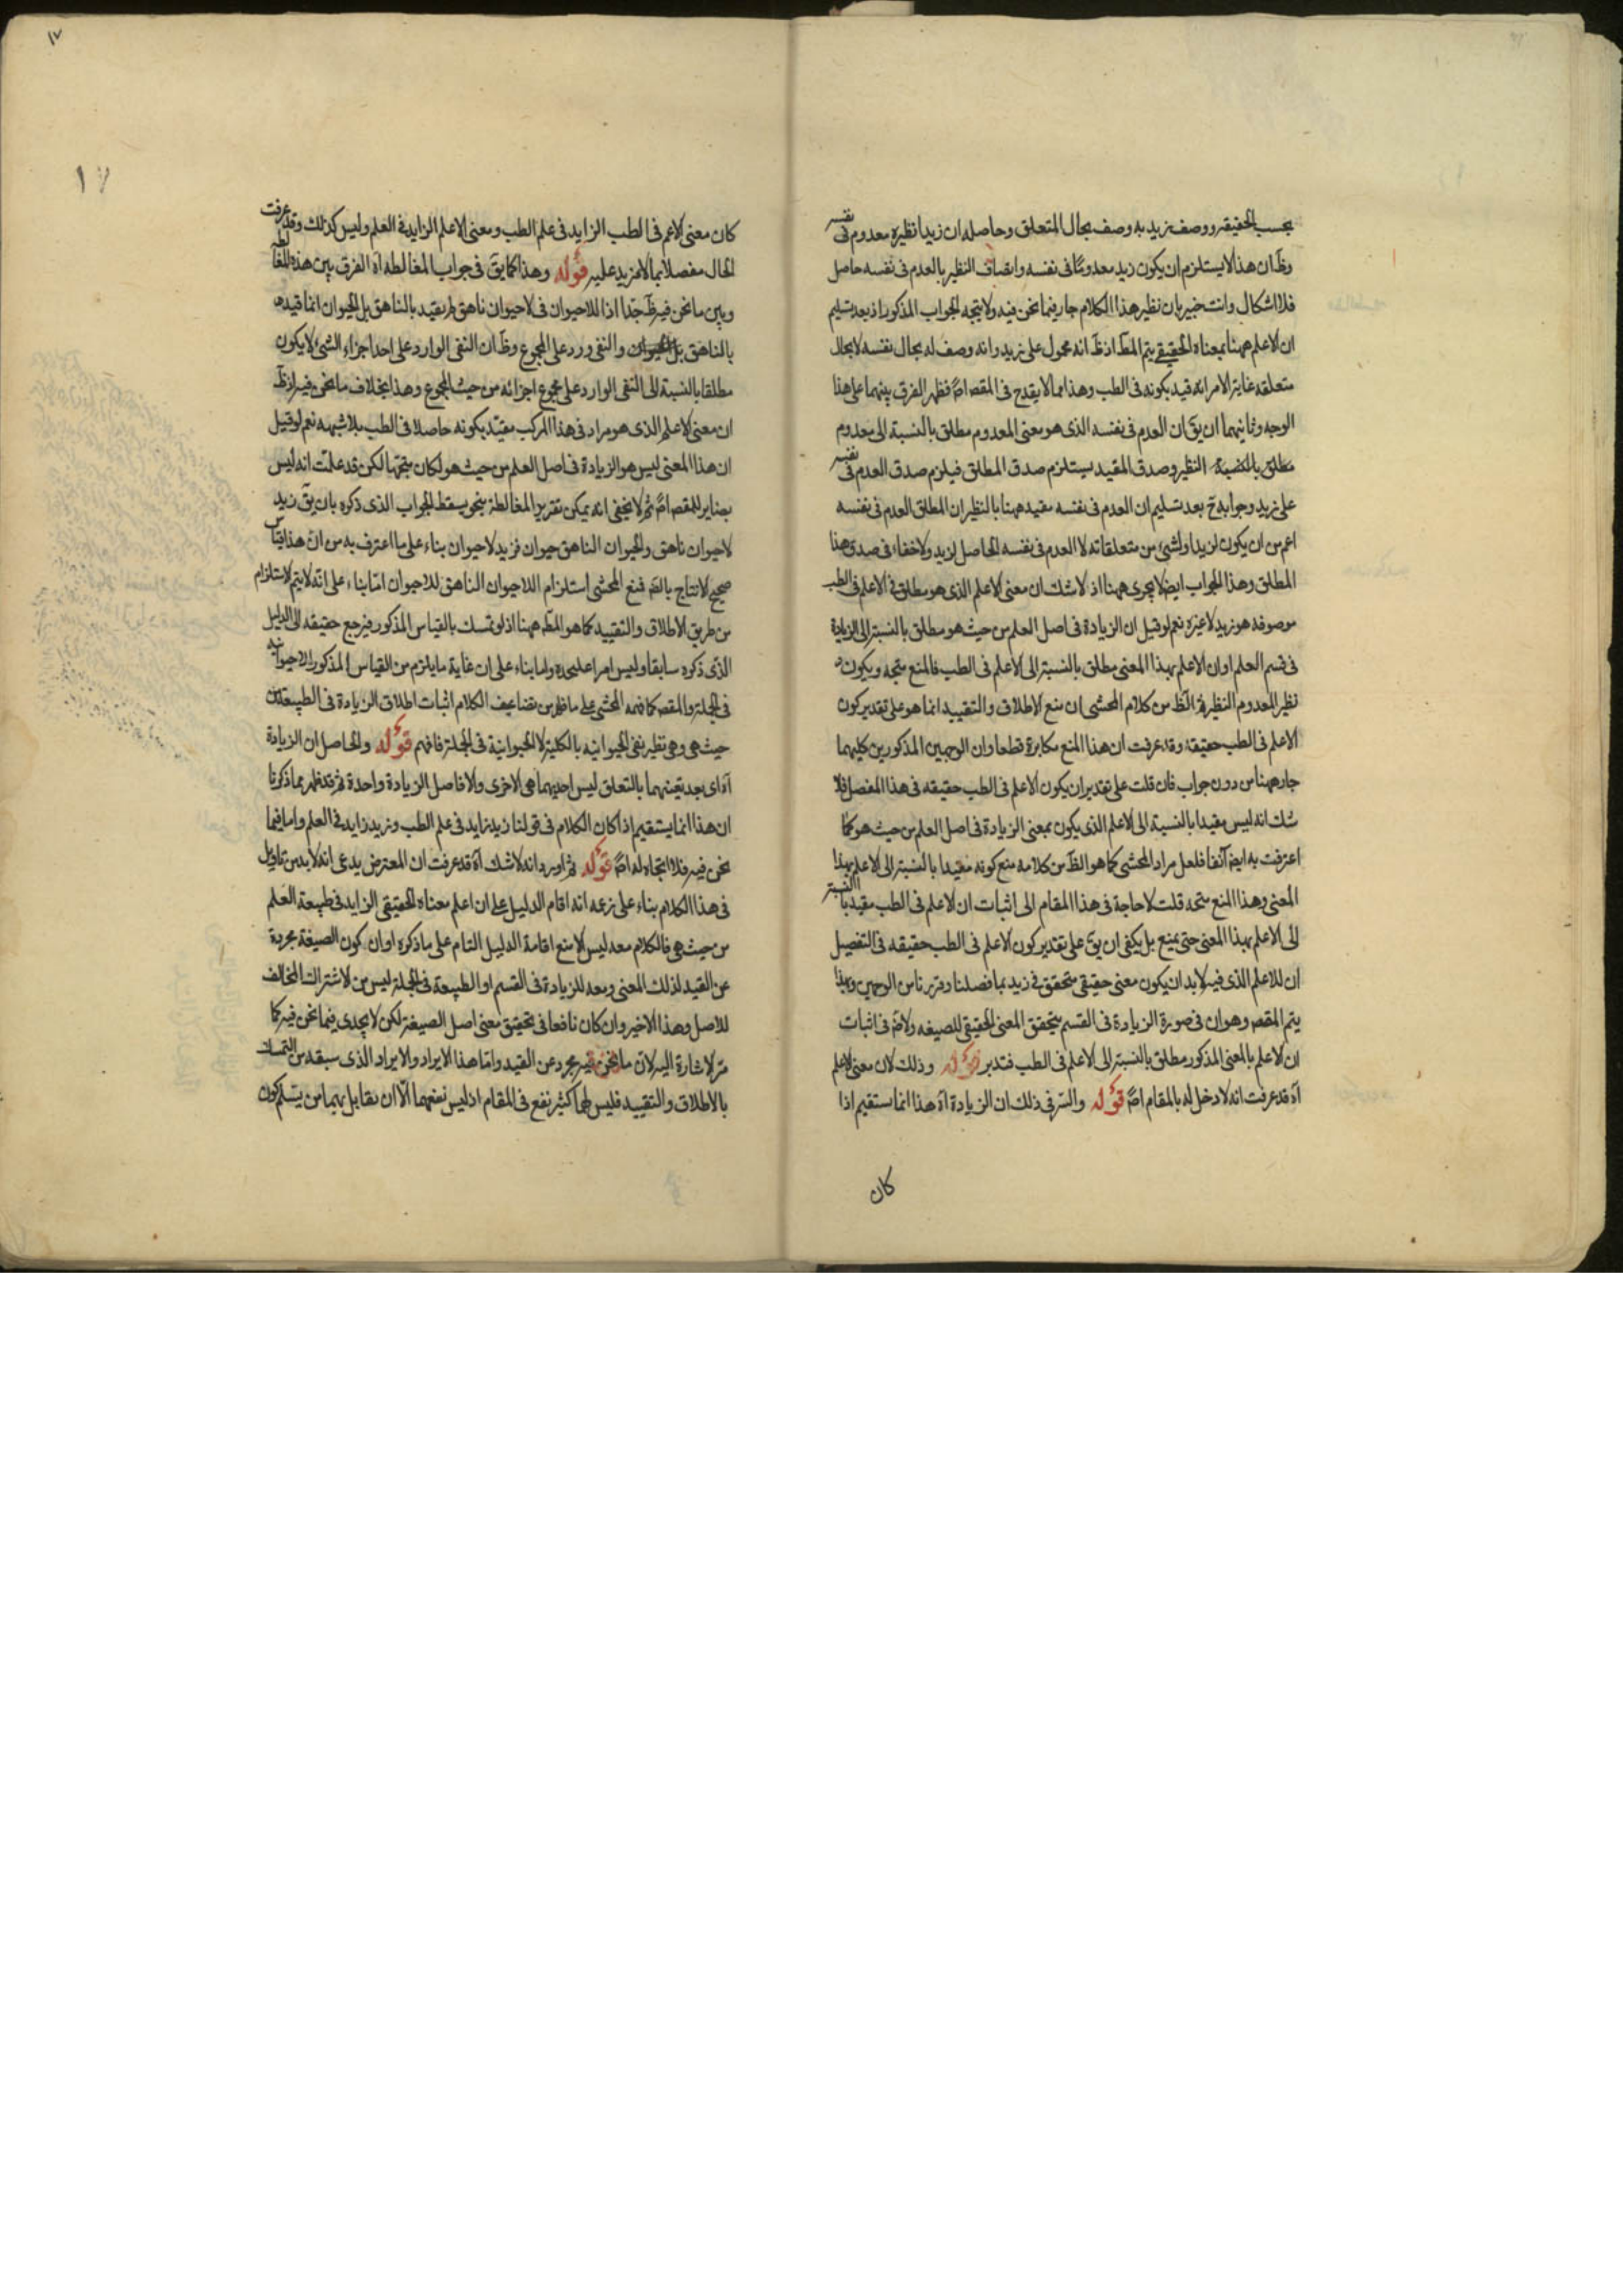 بحسب الحقيقة ووصف زيد به وصف بحال المتعلق وحاصله ان زيدا نظيره معدوم في نفسه
وظ ان هذا لا يستلزم ان يكون زيد معدوما في نفسه واتصاف النظير بالعدم في نفسه حاصل
فلا اشكال وانت خبير بان نظير هذا الكلام جار فيما نحن فيه ولا يتجه الجواب المذكور اذ بعد تسليم
ان الاعلم ههنا بمعناه الحقيقي يتم المط اذ ظ انه محمول على زيد وانه وصف له بحال نفسه لا بحال
متعلقه غاية الامر انه قيد بكونه في الطب وهذا مما لا يقدح في المقص اصً فظهر الفرق بينهما على هذا
الوجه وثانيهما ان يق ان العدم في نفسه الذي هو معنى المعدوم مطلق بالنسبة الى معدوم
النظير وصدق المقيد يستلزم صدق المطلق فيلزم صدق العدم في نفسه
على زيد وجوابه ح بعد تسليم ان العدم في نفسه مقيد ههنا بالنظير ان المطلق العدم في نفسه
اعم من ان يكون لزيد او لشيء من متعلقاته لا العدم في نفسه الحاصل لزيد ولا خفاء في صدق هذا
المطلق وهذا الجواب ايضا لا يجري ههنا اذ لا شك ان معنى الاعلم الذي هو مطلق في الاعلم في الطب
موصوفه هو زيد لا غيره نعم لو قيل ان الزيادة في اصل العلم من حيث هو مطلق بالنسبة الى الزيادة
في قسم العلم او ان الاعلم بهذا المعنى مطلق بالنسبة الى الاعلم في الطب فالمنع متجه ويكون
نظير المعدوم النظير ثم الظ من كلام المحشي ان منع الاطلاق والتقييد انما هو على تقدير كون
الاعلم في الطب حقيقة وقد عرفت ان هذا المنع مكابرة قطعا وان الوجهين المذكورين كليهما
جار ههنا من دون جواب فان قلت على تقدير ان يكون الاعلم في الطب حقيقة في هذا المفصل فلا
شك انه ليس مقيدا بالنسبة الى الاعلم الذي يكون بمعنى الزيادة في اصل العلم من حيث هو كما
اعترفت به ايضا آنفا فلعل مراد المحشي كما هو الظ من كلامه منع كونه مقيدا بالنسبة الى الاعلم بهذا
المعنى وهذا المنع متجه قلت لا حاجة في هذا المقام الى اثبات ان الاعلم في الطب مقيد بالنسبة
الى الاعلم بهذا المعنى حتى يمنع بل يكفي ان يق على تقدير كون الاعلم في الطب حقيقة في التفصيل
ان للاعلم الذي فيه لا بد ان يكون معنى حقيقي متحقق في زيد بما فصلنا وقررنا من الوجهين وبهذا
يتم المقص وهو ان في صورة الزيادة في القسم يتحقق المعنى الحقيقي للصيغه ولا في اثبات
ان الاعلم بالمعنى المذكور مطلق بالنسبة الى الاعلم في الطب فتدبر قوله وذلك لان معنى الاعلم
آه قد عرفت انه لا دخل له بالمقام اصً قوله والسر في ذلك ان الزيادة آه هذا انما يستقيم اذا
كان
١٧
١٧
كان معنى الاعلم في الطب الزايد في علم الطب ومعنى الاعلم الزايد في العلم وليس كذلك وقد عرفت
الحال مفصلا بما لا مزيد عليه قوله وهذا كما يق في جواب المغالطه آه الفرق بين هذه المغالطة
وبين ما نحن فيه ظ جدا اذ اللاحيوان في لاحيوان ناهق لم يقيد بالناهق بل الحيوان انما قيد
بالناهق والنفي ورد على المجموع وظ ان النفي الوارد على احد اجزاء الشيء لا يكون
مطلقا بالنسبة الى النفي الوارد على مجموع اجزائه من حيث المجموع وهذا بخلاف ما نحن فيه اذ ظ
ان معنى الاعلم الذي هو مراد في هذا المركب مقيد بكونه حاصلا في الطب بلا شبهه نعم لو قيل
ان هذا المعنى ليس هو الزيادة في اصل العلم من حيث هو لكان متجها لكن قد علمت انه ليس
بضاير للمقص اصً ثم لا يخفى انه يمكن تقرير المغالطة بنحو يسقط الجواب الذي ذكره بان يق زيد
لاحيوان ناهق والحيوان الناهق حيوان فزيد لاحيوان بناء على ما اعترف به من ان هذا قياس
صحيح الانتاج بالضرورة فمنع المحشي استلزام اللاحيوان الناهق للاحيوان اما بناء على انه لا يتم الاستلزام
من طريق الاطلاق والتقييد كما هو المط ههنا اذ لو تمسك بالقياس المذكور فيرجع حقيقه الى الدليل
الذي ذكره سابقا وليس امرا عليحده واما بناء على ان غاية ما يلزم من القياس المذكور اللاحيوانيه
في الجملة والمقص كما فهمه المحشي على ما ظهر من تضاعيف الكلام اثبات اطلاق الزيادة في الطبيعة من
حيث هي وهي نظير نفي الحيوانيه بالكلية لا الحيوانية في الجملة فافهم قوله والحاصل ان الزيادة
آه اي بعد تعينهما بالتعلق ليس احديهما هي الاخرى والا فاصل الزيادة واحدة ثم قد ظهر بما ذكرنا
ان هذا انما يستقيم اذا كان الكلام في قولنا زيد زايد في علم الطب وزيد زايد في العلم واما فيما
نحن فيه فلا اتجاه له اصً قوله ثم اورد انه لا شك آه قد عرفت ان المعترض يدعى انه لا بد من تاويل
في هذا الكلام بناء على زعمه انه اقام الدليل على ان اعلم معناه الحقيقي الزايد في طبيعة العلم
من حيث هي فالكلام معه ليس الا منع اقامة الدليل التام على ما ذكره او ان كون الصيغة مجردة
عن القيد لذلك المعنى ومعه للزيادة في القسم او الطبيعة في الجملة ليس من الاشتراك المخالف
للاصل وهذا الاخير وان كان نافعا في تحقيق معنى اصل الصيغة لكن لا يجدى فيما نحن فيه كما
مر الاشارة اليه لان ما نحن فيه مجرد عن القيد واما هذا الايراد والايراد الذي سبقه من التمسك
بالاطلاق والتقييد فليس لهما كثير نفع في المقام اذ ليس نفعهما الا ان يقابل بهما من يسلم كون